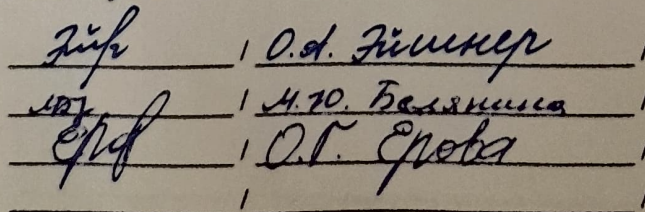 / О.А. Эйшнер /
/ М.Ю. Белянина /
/ О.Г. Ерова /
/ /